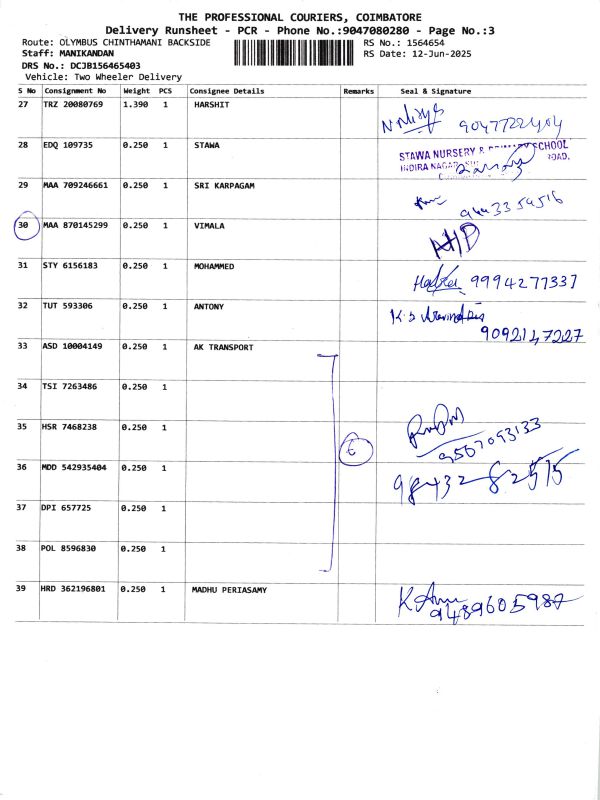 THE PROFESSIONAL COURIERS, COIMBATORE
Delivery Runsheet - PCR - Phone No.:9047080280 - Page No.:3
Route: OLYMBUS CHINTHAMANI BACKSIDE RS No.: 1564654
Staff: MANIKANDAN RS Date: 12-Jun-2025
DRS No.: DCJB156465403
Vehicle: Two Wheeler Delivery
S No Consignment No Weight PCS Consignee Details Remarks Seal & Signature
27 TRZ 20080769 1.390 1 HARSHIT
9047722404
28 EDQ 109735 0.250 1 STAWA
STAWA NURSERY & SCHOOL
INDIRA NAGAR ROAD.
29 MAA 709246661 0.250 1 SRI KARPAGAM
9443359516
30 MAA 870145299 0.250 1 VIMALA
31 STY 6156183 0.250 1 MOHAMMED
9994277337
32 TUT 593306 0.250 1 ANTONY
K.S
9092147227
33 ASD 10004149 0.250 1 AK TRANSPORT
34 TSI 7263486 0.250 1
35 HSR 7468238 0.250 1
6
9567093133
36 MDD 542935404 0.250 1
98432 82515
37 DPI 657725 0.250 1
38 POL 8596830 0.250 1
39 HRD 362196801 0.250 1 MADHU PERIASAMY
9489605987